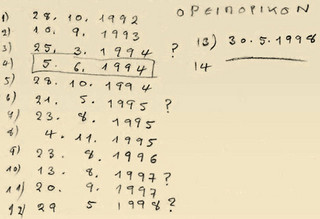 ΟΡΕΙΠΟΡΙΚΟΝ
1) 28. 10. 1992
2) 10. 9. 1993
3) 25. 3. 1994 ?
4) 5. 6. 1994
5) 28. 10. 1994
6) 21. 5. 1995 ?
7) 23. 8. 1995
8) 4. 11. 1995
9) 23. 8. 1996
10) 13. 8. 1997 ?
11) 20. 9. 1997
12) 29 5 1998 ?
13) 30. 5. 1998
14